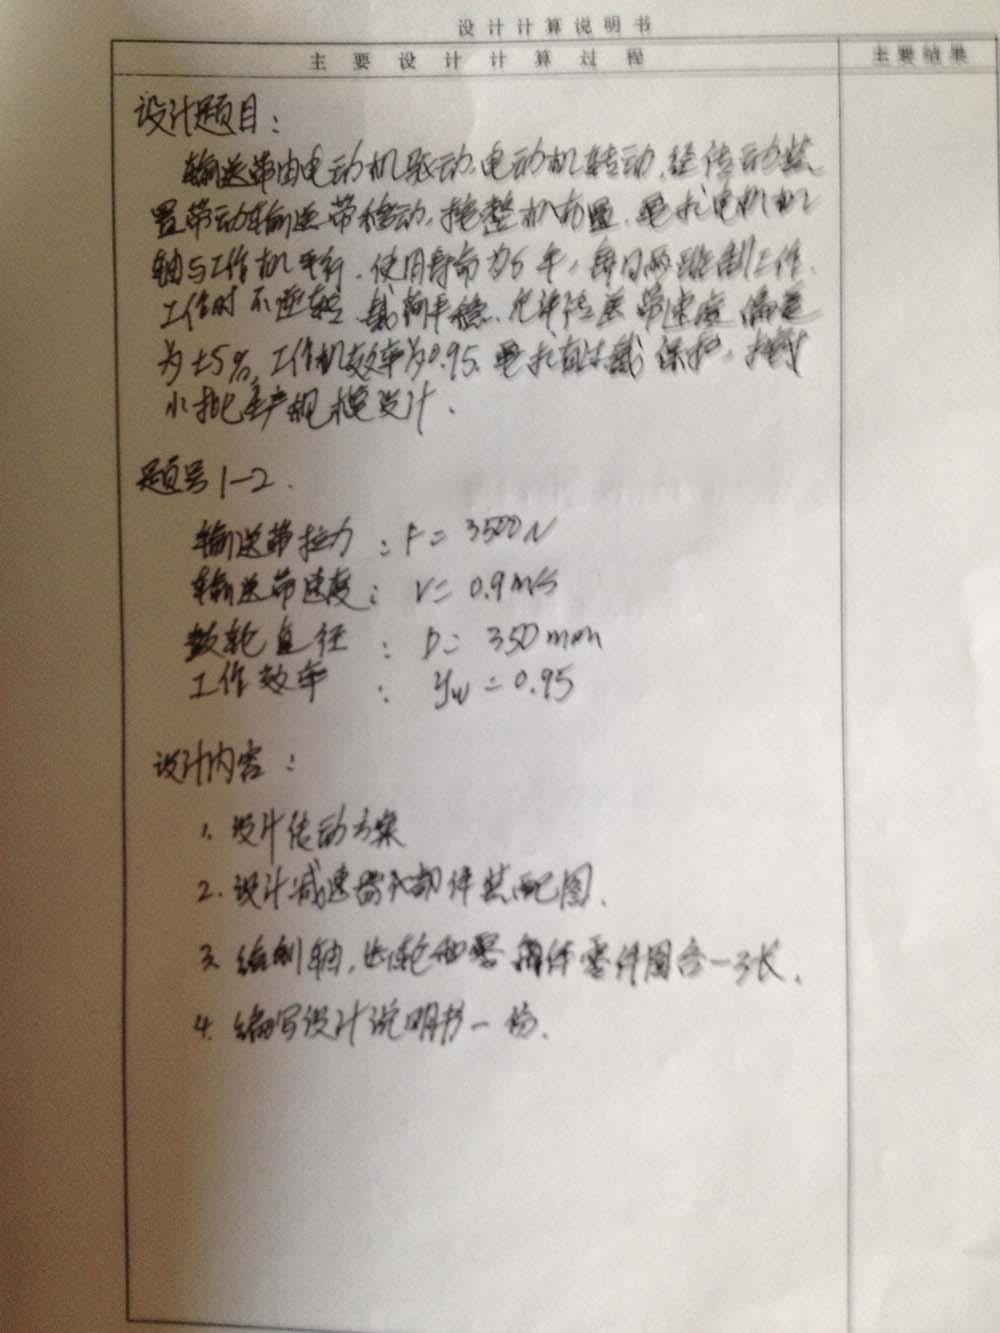 设计计算说明书
主要设计计算过程 主要结果
设计题目：
输送带由电动机驱动，电动机转动，经传动装
置带动输送带移动，按整机布置，要求电机机
轴与工作机平行，使用寿命为5年，每日两班制工作，
工作时不逆转，载荷平稳，允许输送带速度偏差
为±5%，工作机效率为0.95，要求有过载保护，按
小批生产规模设计．
题号1-2．
输送带拉力：F=3500N
输送带速度：V=0.9m/s
鼓轮直径：D=350mm
工作效率：ηw=0.95
设计内容：
1. 设计传动方案
2. 设计减速器部件装配图．
3. 绘制轴，齿轮和零件图各一张．
4. 编写设计说明书一份．